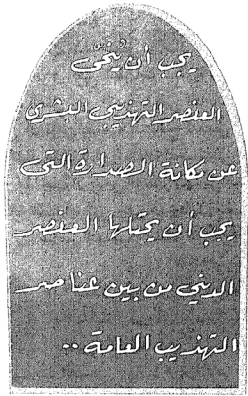 يجب أن يُنحَّى
العنصر التهذيبي البشري
عن مكانة الصدارة التى
يجب أن يحتلها العنصر
الدينى من بين عناصر
التهذيب العامة ..